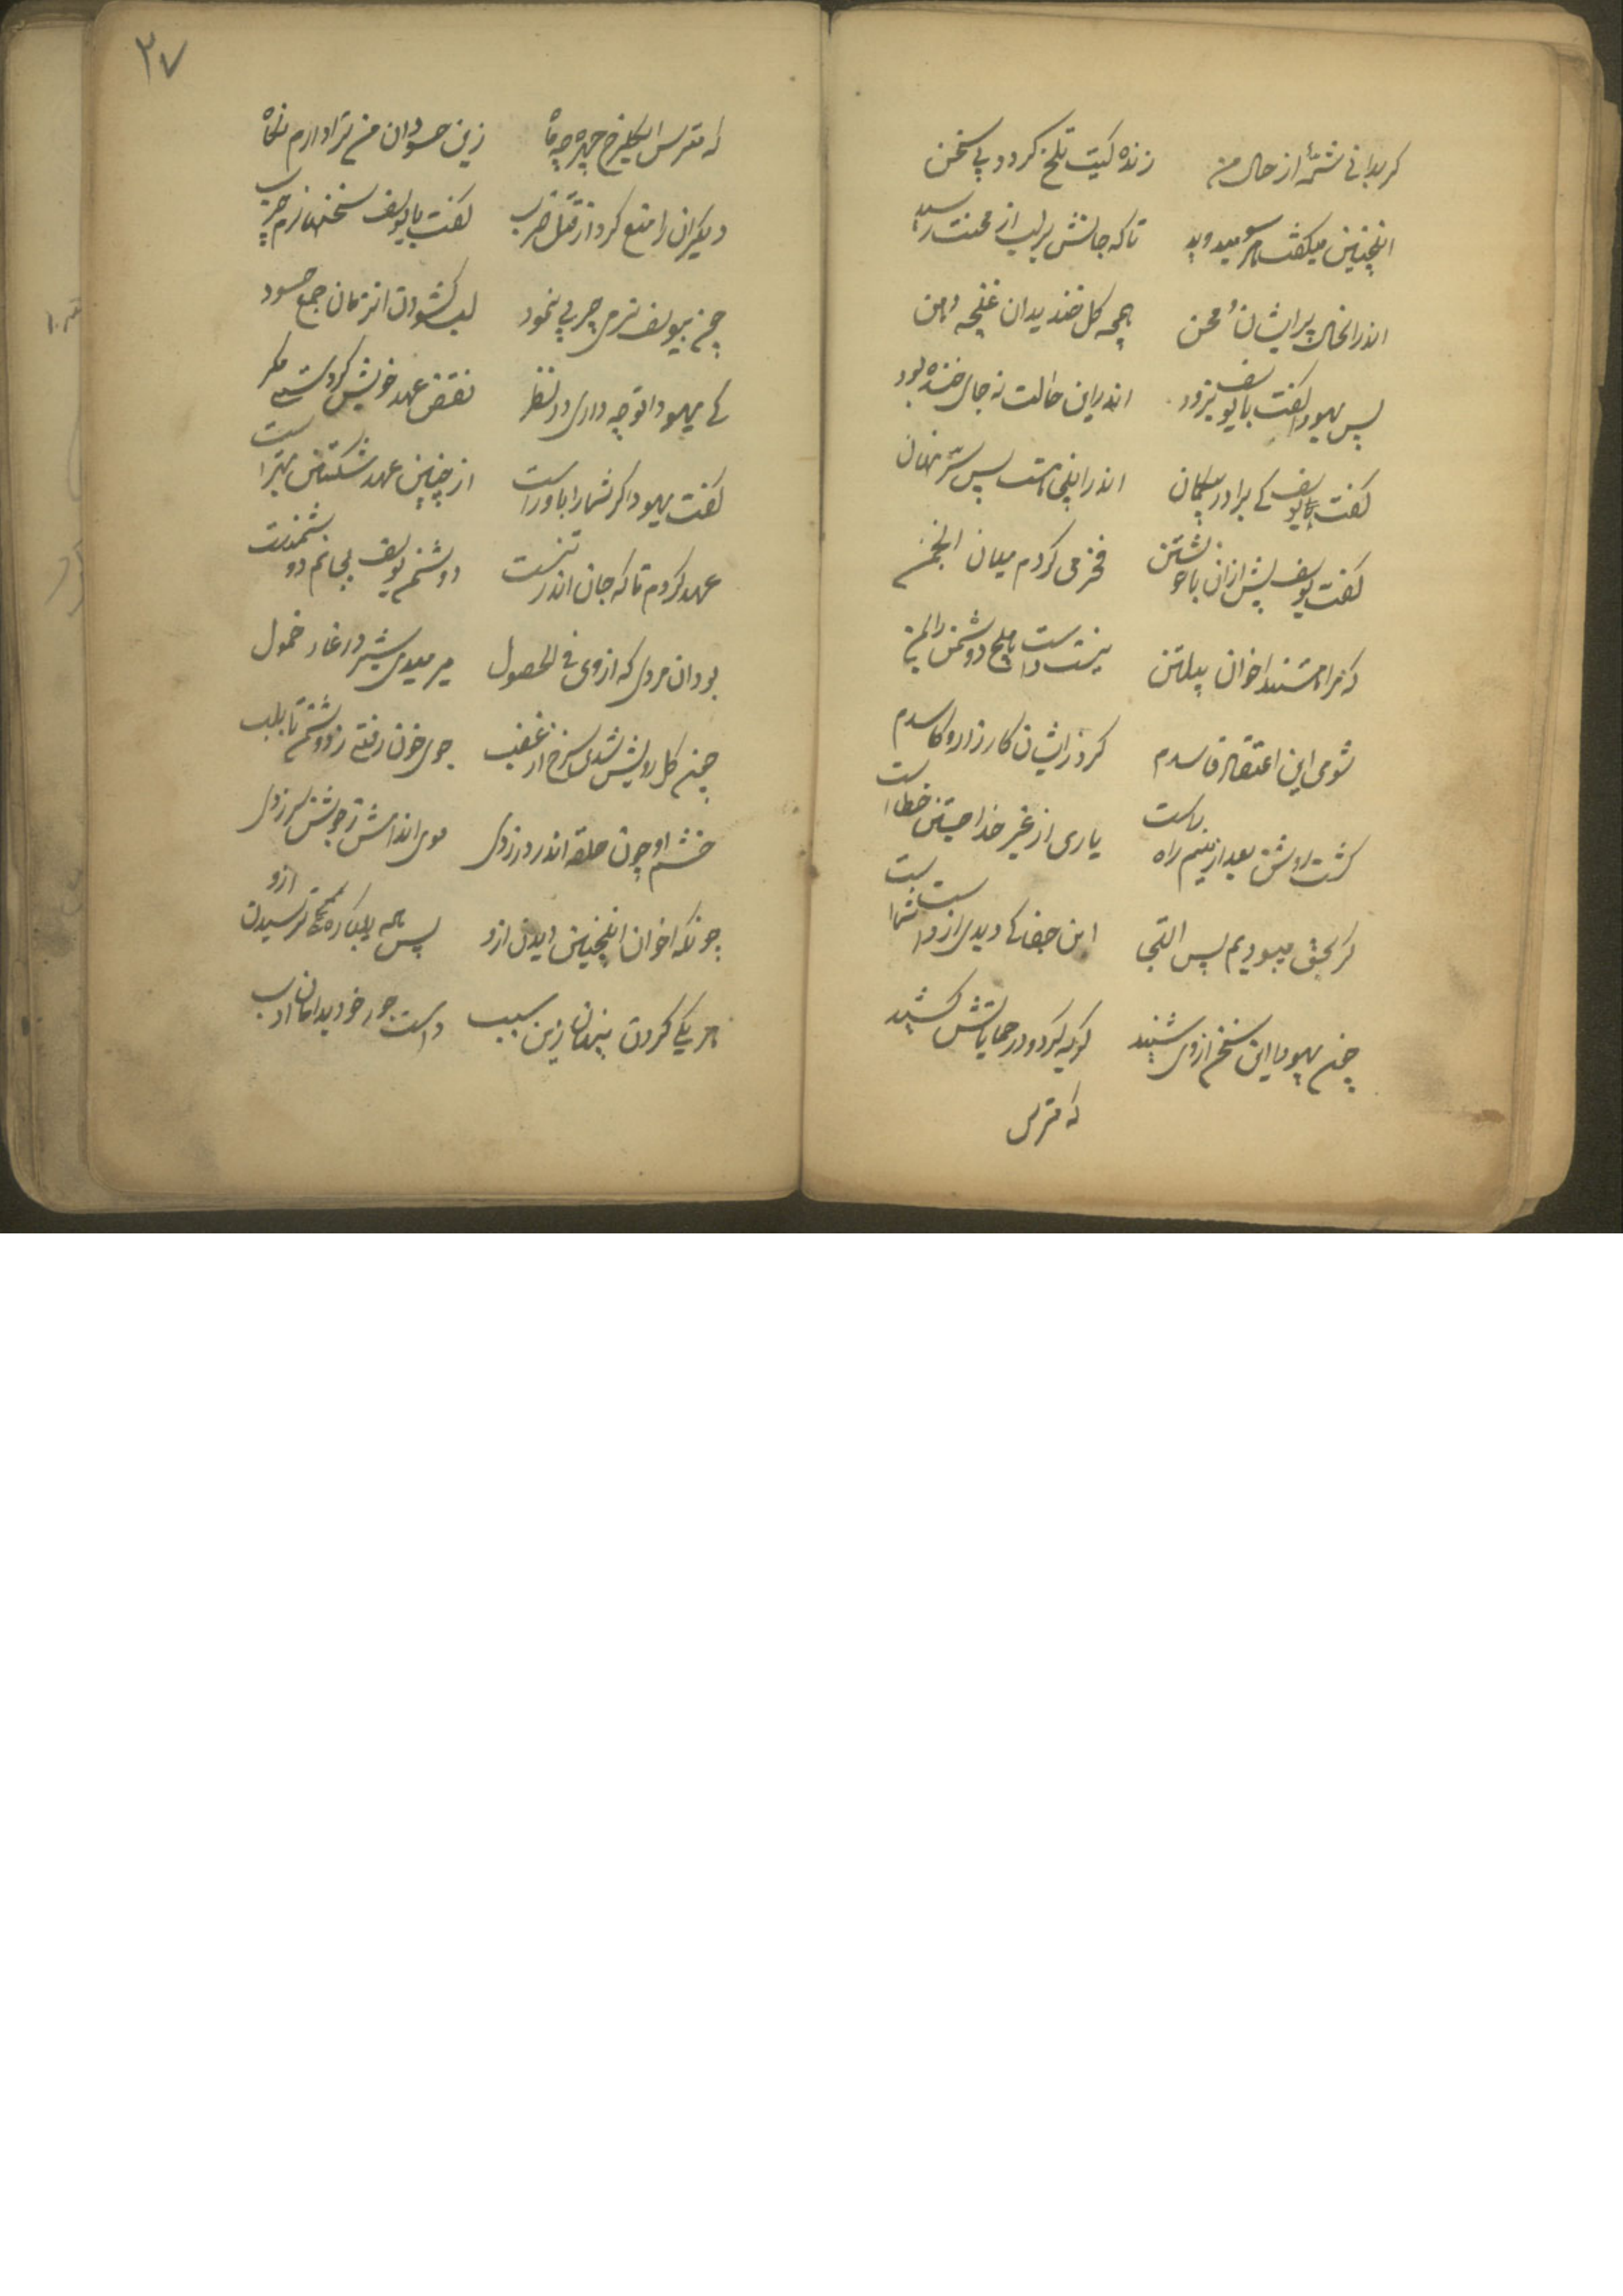 گر بدانی شمهٔ از حال من زندهٔ کیت تلخ گردد پی سخن
اینچنین میگفت هر سو میدوید تا که جانش بر لب از محنت رسید
اندر انحال پریشان و محن همچه گل خندید ان غنچه دهن
پس یهودا گفت با یوسف بزود اندر این حالت نه جای خنده بود
گفت یوسف کای برادر اندر اینجا هست پس سر نهان
گفت یوسف پیش ازان با خویشتن فخر می کردم میان انجمن
که مرا هستند اخوان پیلتن نیست دست هیچ دوشمن را بمن
شومی این اعتقاد فاسدم کرد زایشان کارزار و کاسدم
گشت روشن بعد ازینم راه راست یاری از غیر خدا جستن خطاست
گر بحق میبودیم پس التجا این جفا کی دیدی از دست شما
چون یهودا این سخن از وی شنید گریه کرد و در حمایتش کشید
که مترس
۲۷
که مترس ای گلرخ چهره چه ماه زین حسودان من ترا دارم نگاه
دیگران را منع کرد از قتل و ضرب گفت با یوسف سخنهای نرم چرب
چون بیوسف نرمی چربی نمود لب گشودن انزمان جمع حسود
کای یهودا تو چه داری در نظر نقض عهد خویش کردستی مگر
گفت یهودا گر شما را باور است از چنین عهد شکستن بهتر است
عهد کردم تا که جان اندر تنست دوشنم یوسف بجانم دوشمنست
بود ان مردی که از وی فی الحصول میرمیدی شیر در غار خمول
چون گل رویش شدی سرخ از غضب جوی خون رفتی ز دوشمن تا بلب
خشم او چون حلقه اندر در زدی موی اندامش ز جوشن سر زدی
چونکه اخوان اینچنین دیدن ازو پس همه یکباره ترسیدن ازو
هر یکی کردن پنهان زین سبب دست جور خود بدامان ادب